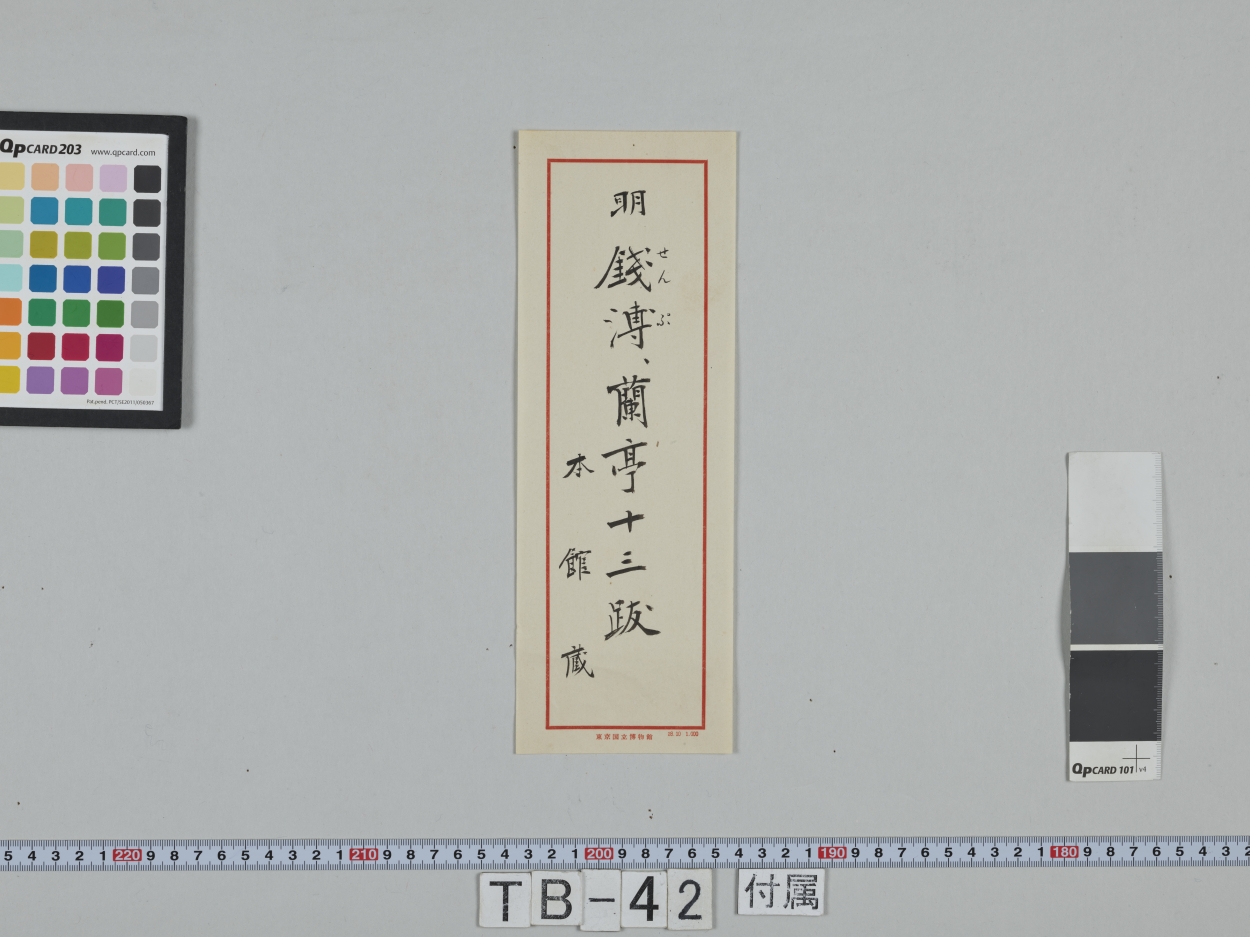 QpCARD 203 www.qpcard.com
Pat.pend. PCT/SE2011/050367
明 錢溥、蘭亭十三跋
せんぷ
本館蔵
東京国立博物館
QpCARD 101 v4
5 4 3 2 1 220 9 8 7 6 5 4 3 2 1 210 9 8 7 6 5 4 3 2 1 200 9 8 7 6 5 4 3 2 1 190 9 8 7 6 5 4 3 2 1 180 9 8 7 6 5 4 3 2
TB-42 付属